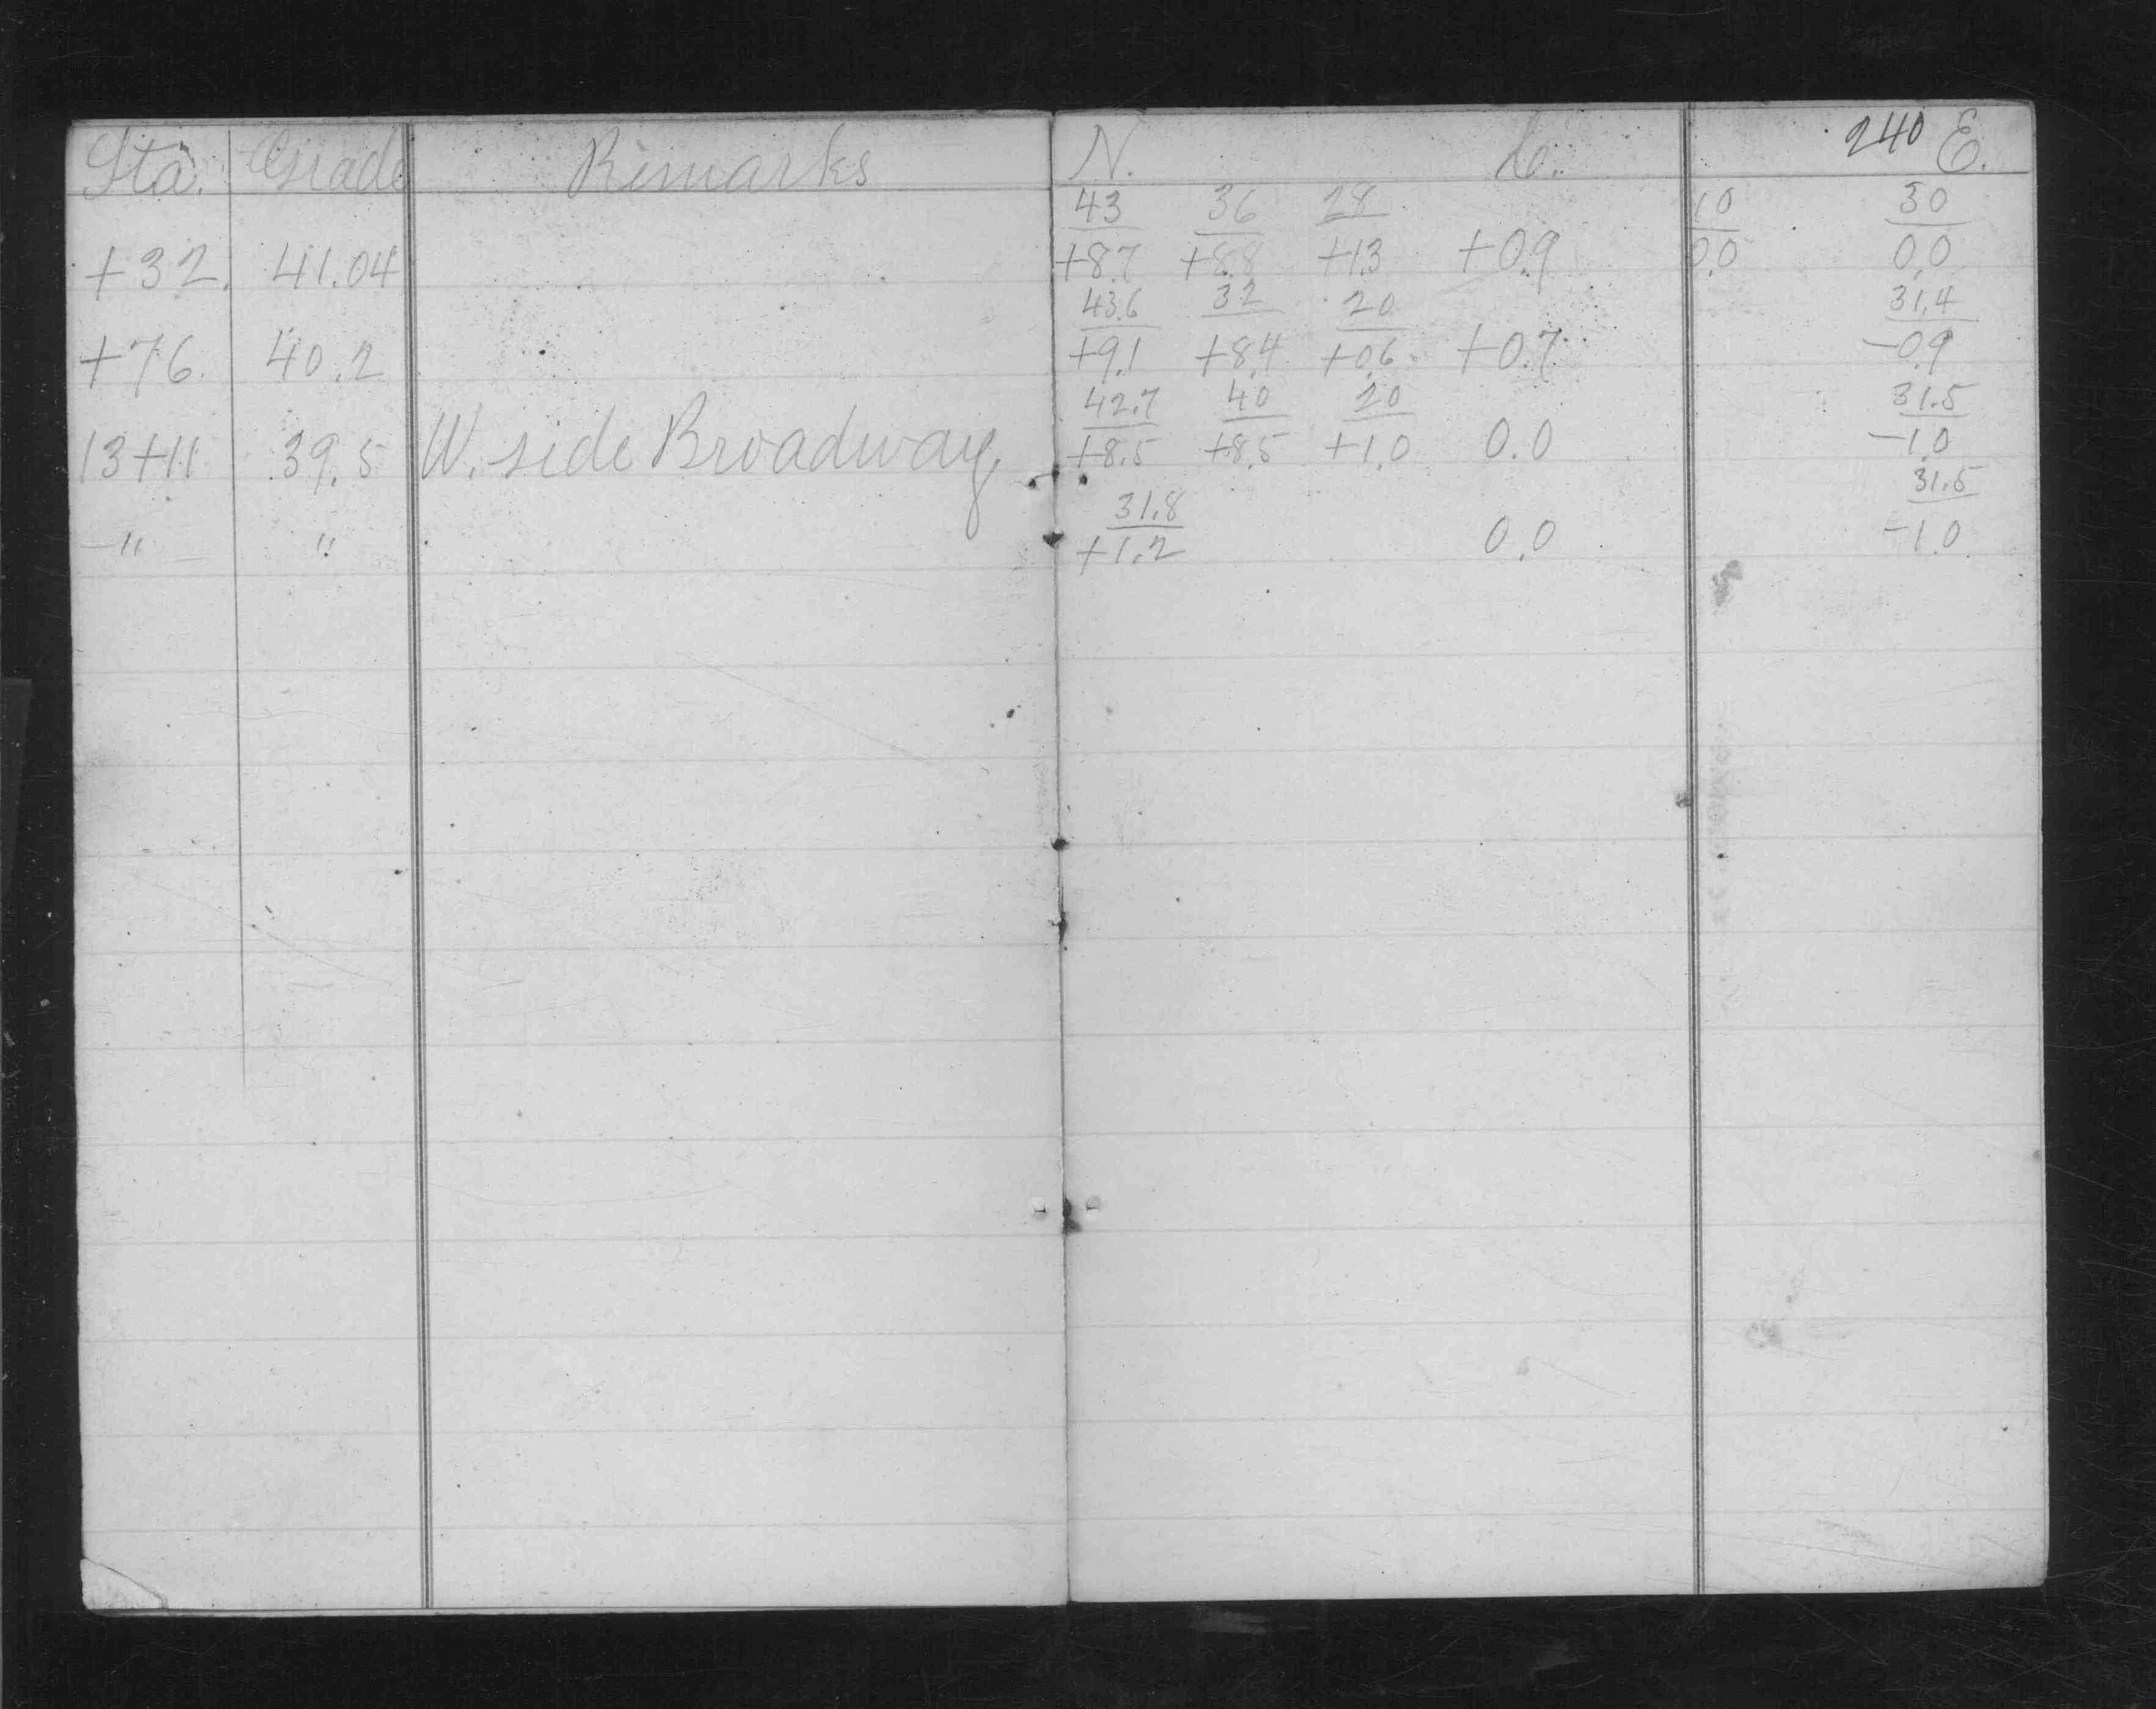 240
Sta. Grade Remarks N. C. E.
43 36 28 10 30
+32. 41.04 +8.7 +8.8 +1.3 +0.9 0.0 0.0
43.6 32 20 31.4
+76. 40.2 +9.1 +8.4 +0.6 +0.7 -0.9
42.7 40 20 31.5
13+11 39.5 W. side Broadway +8.5 +8.5 +1.0 0.0 -1.0
31.8 31.5
" " +1.2 0.0 -1.0